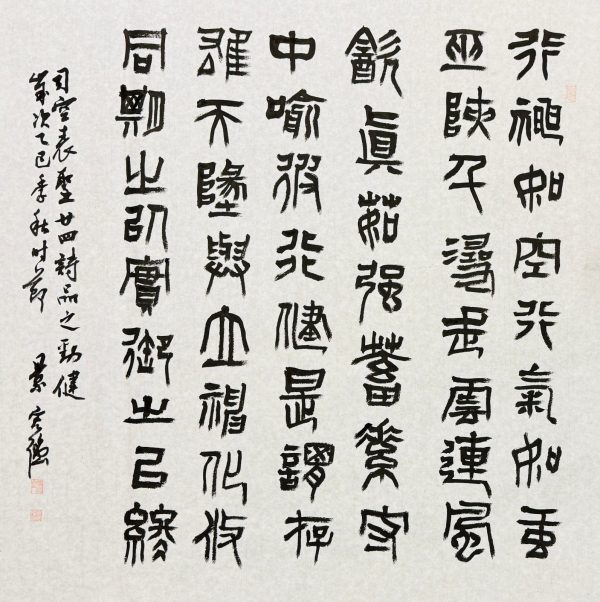 行神如空行氣如虹
巫峽千尋走雲連風
飲眞茹强蓄素守
中喻彼行健是謂存
雄天地與立神化攸
同期之以實御之以終
司空表聖廿四詩品之勁健
歲次乙巳季秋時節 景